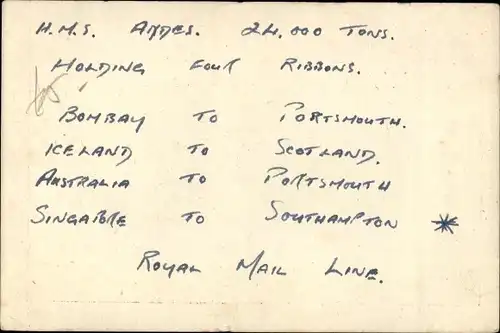 H.M.S. ANDES. 24,000 TONS.
HOLDING FOUR RIBBONS.
BOMBAY TO PORTSMOUTH.
ICELAND TO SCOTLAND.
AUSTRALIA TO PORTSMOUTH
SINGAPORE TO SOUTHAMPTON *
ROYAL MAIL LINE.